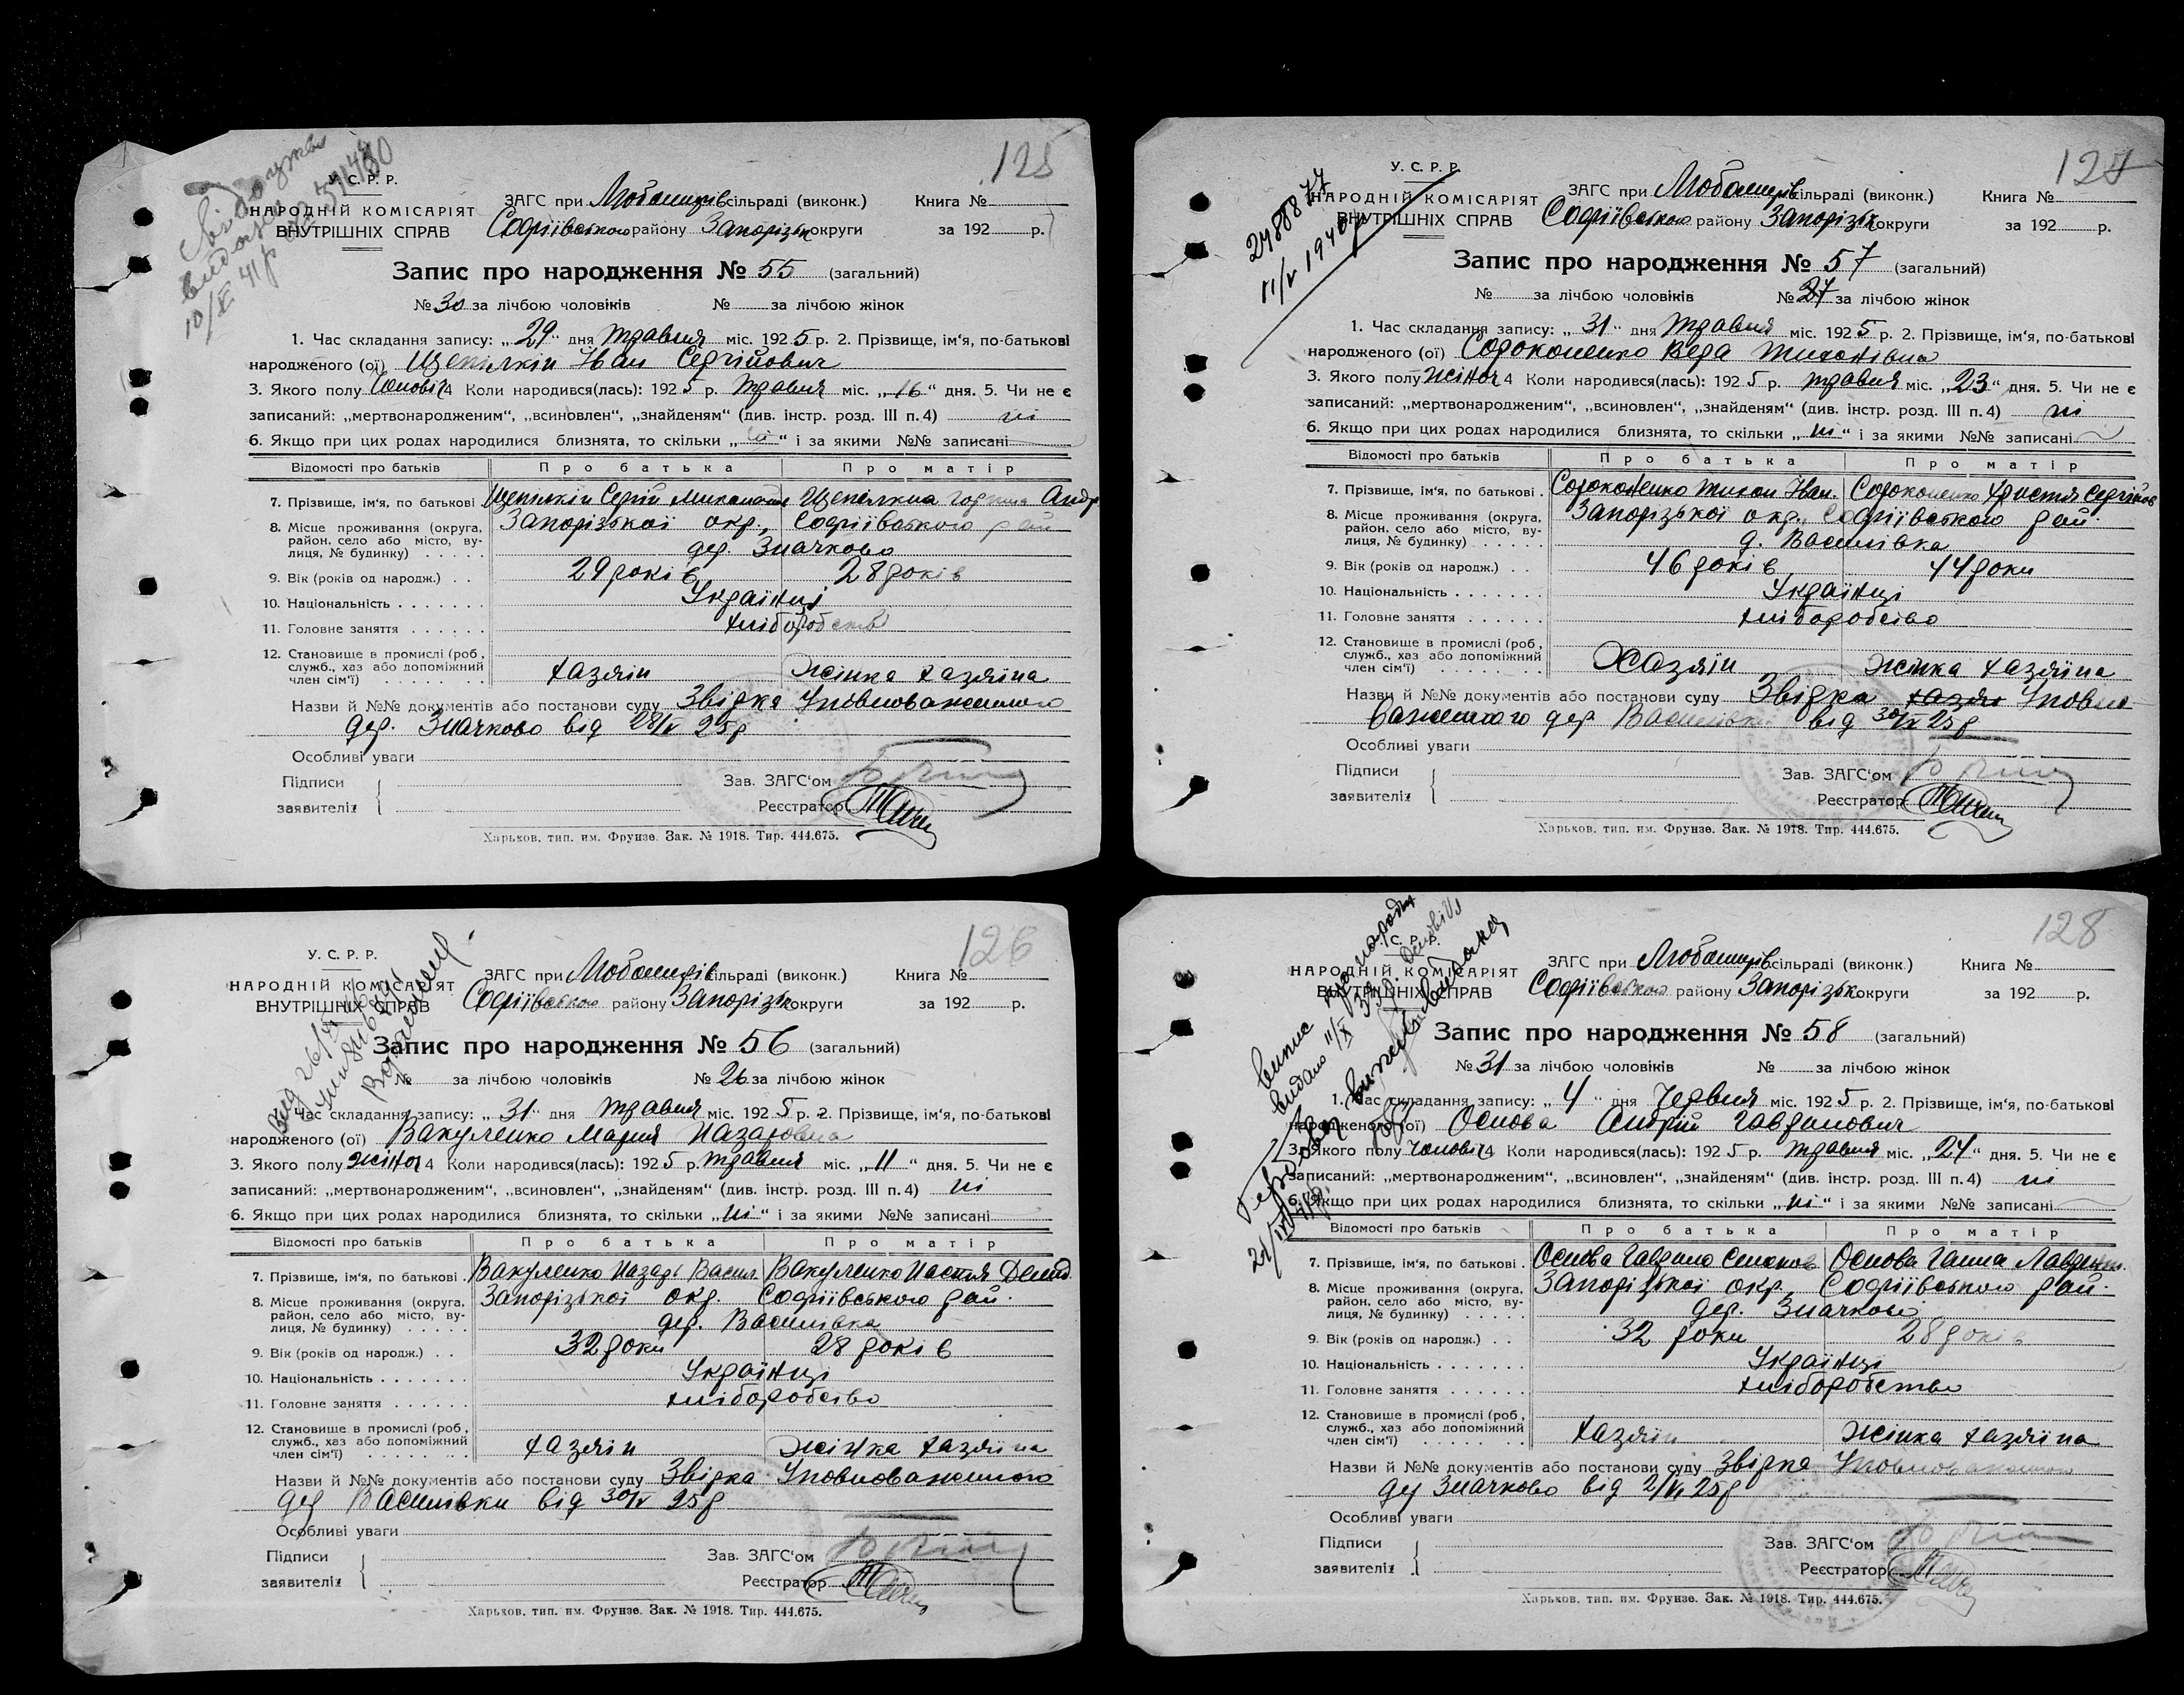 125
У. С. Р. Р.
НАРОДНІЙ КОМІСАРІЯТ
ВНУТРІШНІХ СПРАВ
ЗАГС при Любашків сільраді (виконк.) Книга №
Софіївського району Запорізьк округи за 192 р.
Запис про народження № 55 (загальний)
№ 30 за лічбою чоловіків № за лічбою жінок
1. Час складання запису: „29“ дня травня міс. 1925 р. 2. Прізвище, ім‘я, по-батькові
народженого (ої) Щепілкін Іван Сергійович
3. Якого полу Чоловіч 4 Коли народився(лась): 1925 р. травня міс. „16“ дня. 5. Чи не є
записаний: „мертвонародженим“, „всиновлен“, „знайденям“ (див. інстр. розд. III п. 4) ні
6. Якщо при цих родах народилися близнята, то скільки „ні“ і за якими №№ записані
Відомості про батьків Про батька Про матір
7. Прізвище, ім‘я, по батькові Щепілкін Сергій Щепілкина Андр
8. Місце проживання (округа, район, село або місто, вулиця, № будинку) Запорізької окр., Софіївського рай
дер. Значково
9. Вік (років од народж.) 29 років 28 років
10. Національність Українці
11. Головне заняття хліборобство
12. Становище в промислі (роб, служб., хаз або допоміжний член сім‘ї) хазяїн жінка хазяїна
Назви й №№ документів або постанови суду Звірка Уповноваженного
дер. Значково від 28/V 25р
Особливі уваги
Підписи Зав. ЗАГС‘ом
заявителів Реєстратор
Харьков, тип. им. Фрунзе. Зак. № 1918. Тир. 444.675.
127
24888877
11/V 1940
У. С. Р. Р.
НАРОДНІЙ КОМІСАРІЯТ
ВНУТРІШНІХ СПРАВ
ЗАГС при Любашків сільраді (виконк.) Книга №
Софіївського району Запорізьк округи за 192 р.
Запис про народження № 57 (загальний)
№ за лічбою чоловіків № 27 за лічбою жінок
1. Час складання запису: „31“ дня травня міс. 1925 р. 2. Прізвище, ім‘я, по-батькові
народженого (ої) Сороконенко Вера Тихонівна
3. Якого полу жіноч 4 Коли народився(лась): 1925 р. травня міс. „23“ дня. 5. Чи не є
записаний: „мертвонародженим“, „всиновлен“, „знайденям“ (див. інстр. розд. III п. 4) ні
6. Якщо при цих родах народилися близнята, то скільки „ні“ і за якими №№ записані
Відомості про батьків Про батька Про матір
7. Прізвище, ім‘я, по батькові Сороконенко Тихон Іван. Сороконенко Христя Сергійов
8. Місце проживання (округа, район, село або місто, вулиця, № будинку) Запорізької окр., Софіївського рай.
д. Василівка
9. Вік (років од народж.) 46 років 44 роки
10. Національність Українці
11. Головне заняття хліборобство
12. Становище в промислі (роб, служб., хаз або допоміжний член сім‘ї) Хазяїн жінка хазяїна
Назви й №№ документів або постанови суду Звірка хазяї Уповно
важенного дер Василівки від 30/V 25р
Особливі уваги
Підписи Зав. ЗАГС‘ом
заявителів Реєстратор
Харьков, тип. им. Фрунзе. Зак. № 1918. Тир. 444.675.
126
У. С. Р. Р.
НАРОДНІЙ КОМІСАРІЯТ
ВНУТРІШНІХ СПРАВ
ЗАГС при Любашків сільраді (виконк.) Книга №
Софіївського району Запорізьк округи за 192 р.
Запис про народження № 56 (загальний)
№ за лічбою чоловіків № 26 за лічбою жінок
1. Час складання запису: „31“ дня травня міс. 1925 р. 2. Прізвище, ім‘я, по-батькові
народженого (ої) Вакуленко Мария Назаровна
3. Якого полу жіноч 4 Коли народився(лась): 1925 р. травня міс. „11“ дня. 5. Чи не є
записаний: „мертвонародженим“, „всиновлен“, „знайденям“ (див. інстр. розд. III п. 4) ні
6. Якщо при цих родах народилися близнята, то скільки „ні“ і за якими №№ записані
Відомості про батьків Про батька Про матір
7. Прізвище, ім‘я, по батькові Вакуленко Назарь Васил Вакуленко Настя Демид
8. Місце проживання (округа, район, село або місто, вулиця, № будинку) Запорізької окр. Софіївського рай.
дер. Василівка
9. Вік (років од народж.) 32 роки 28 років
10. Національність Українці
11. Головне заняття хліборобство
12. Становище в промислі (роб, служб., хаз або допоміжний член сім‘ї) хазяїн жінка хазяїна
Назви й №№ документів або постанови суду Звірка Уповноваженного
дер Василівки від 30/V 25р
Особливі уваги
Підписи Зав. ЗАГС‘ом
заявителів Реєстратор
Харьков, тип. им. Фрунзе. Зак. № 1918. Тир. 444.675.
128
У. С. Р. Р.
НАРОДНІЙ КОМІСАРІЯТ
ВНУТРІШНІХ СПРАВ
ЗАГС при Любашків сільраді (виконк.) Книга №
Софіївського району Запорізьк округи за 192 р.
Запис про народження № 58 (загальний)
№ 31 за лічбою чоловіків № за лічбою жінок
1. Час складання запису: „4“ дня Червня міс. 1925 р. 2. Прізвище, ім‘я, по-батькові
народженого (ої) Основа Андрій Гаврилович
3. Якого полу чоловіч 4 Коли народився(лась): 1925 р. травня міс. „24“ дня. 5. Чи не є
записаний: „мертвонародженим“, „всиновлен“, „знайденям“ (див. інстр. розд. III п. 4) ні
6. Якщо при цих родах народилися близнята, то скільки „ні“ і за якими №№ записані
Відомості про батьків Про батька Про матір
7. Прізвище, ім‘я, по батькові Основа Гаврило Основа Ганна
8. Місце проживання (округа, район, село або місто, вулиця, № будинку) Запорізької окр., Софіївського рай.
дер. Значково
9. Вік (років од народж.) 32 роки 28 років
10. Національність Українці
11. Головне заняття хліборобство
12. Становище в промислі (роб, служб., хаз або допоміжний член сім‘ї) хазяїн жінка хазяїна
Назви й №№ документів або постанови суду Звірка Уповноваженного
дер Значково від 2/VI 25р
Особливі уваги
Підписи Зав. ЗАГС‘ом
заявителів Реєстратор
Харьков, тип. им. Фрунзе. Зак. № 1918. Тир. 444.675.